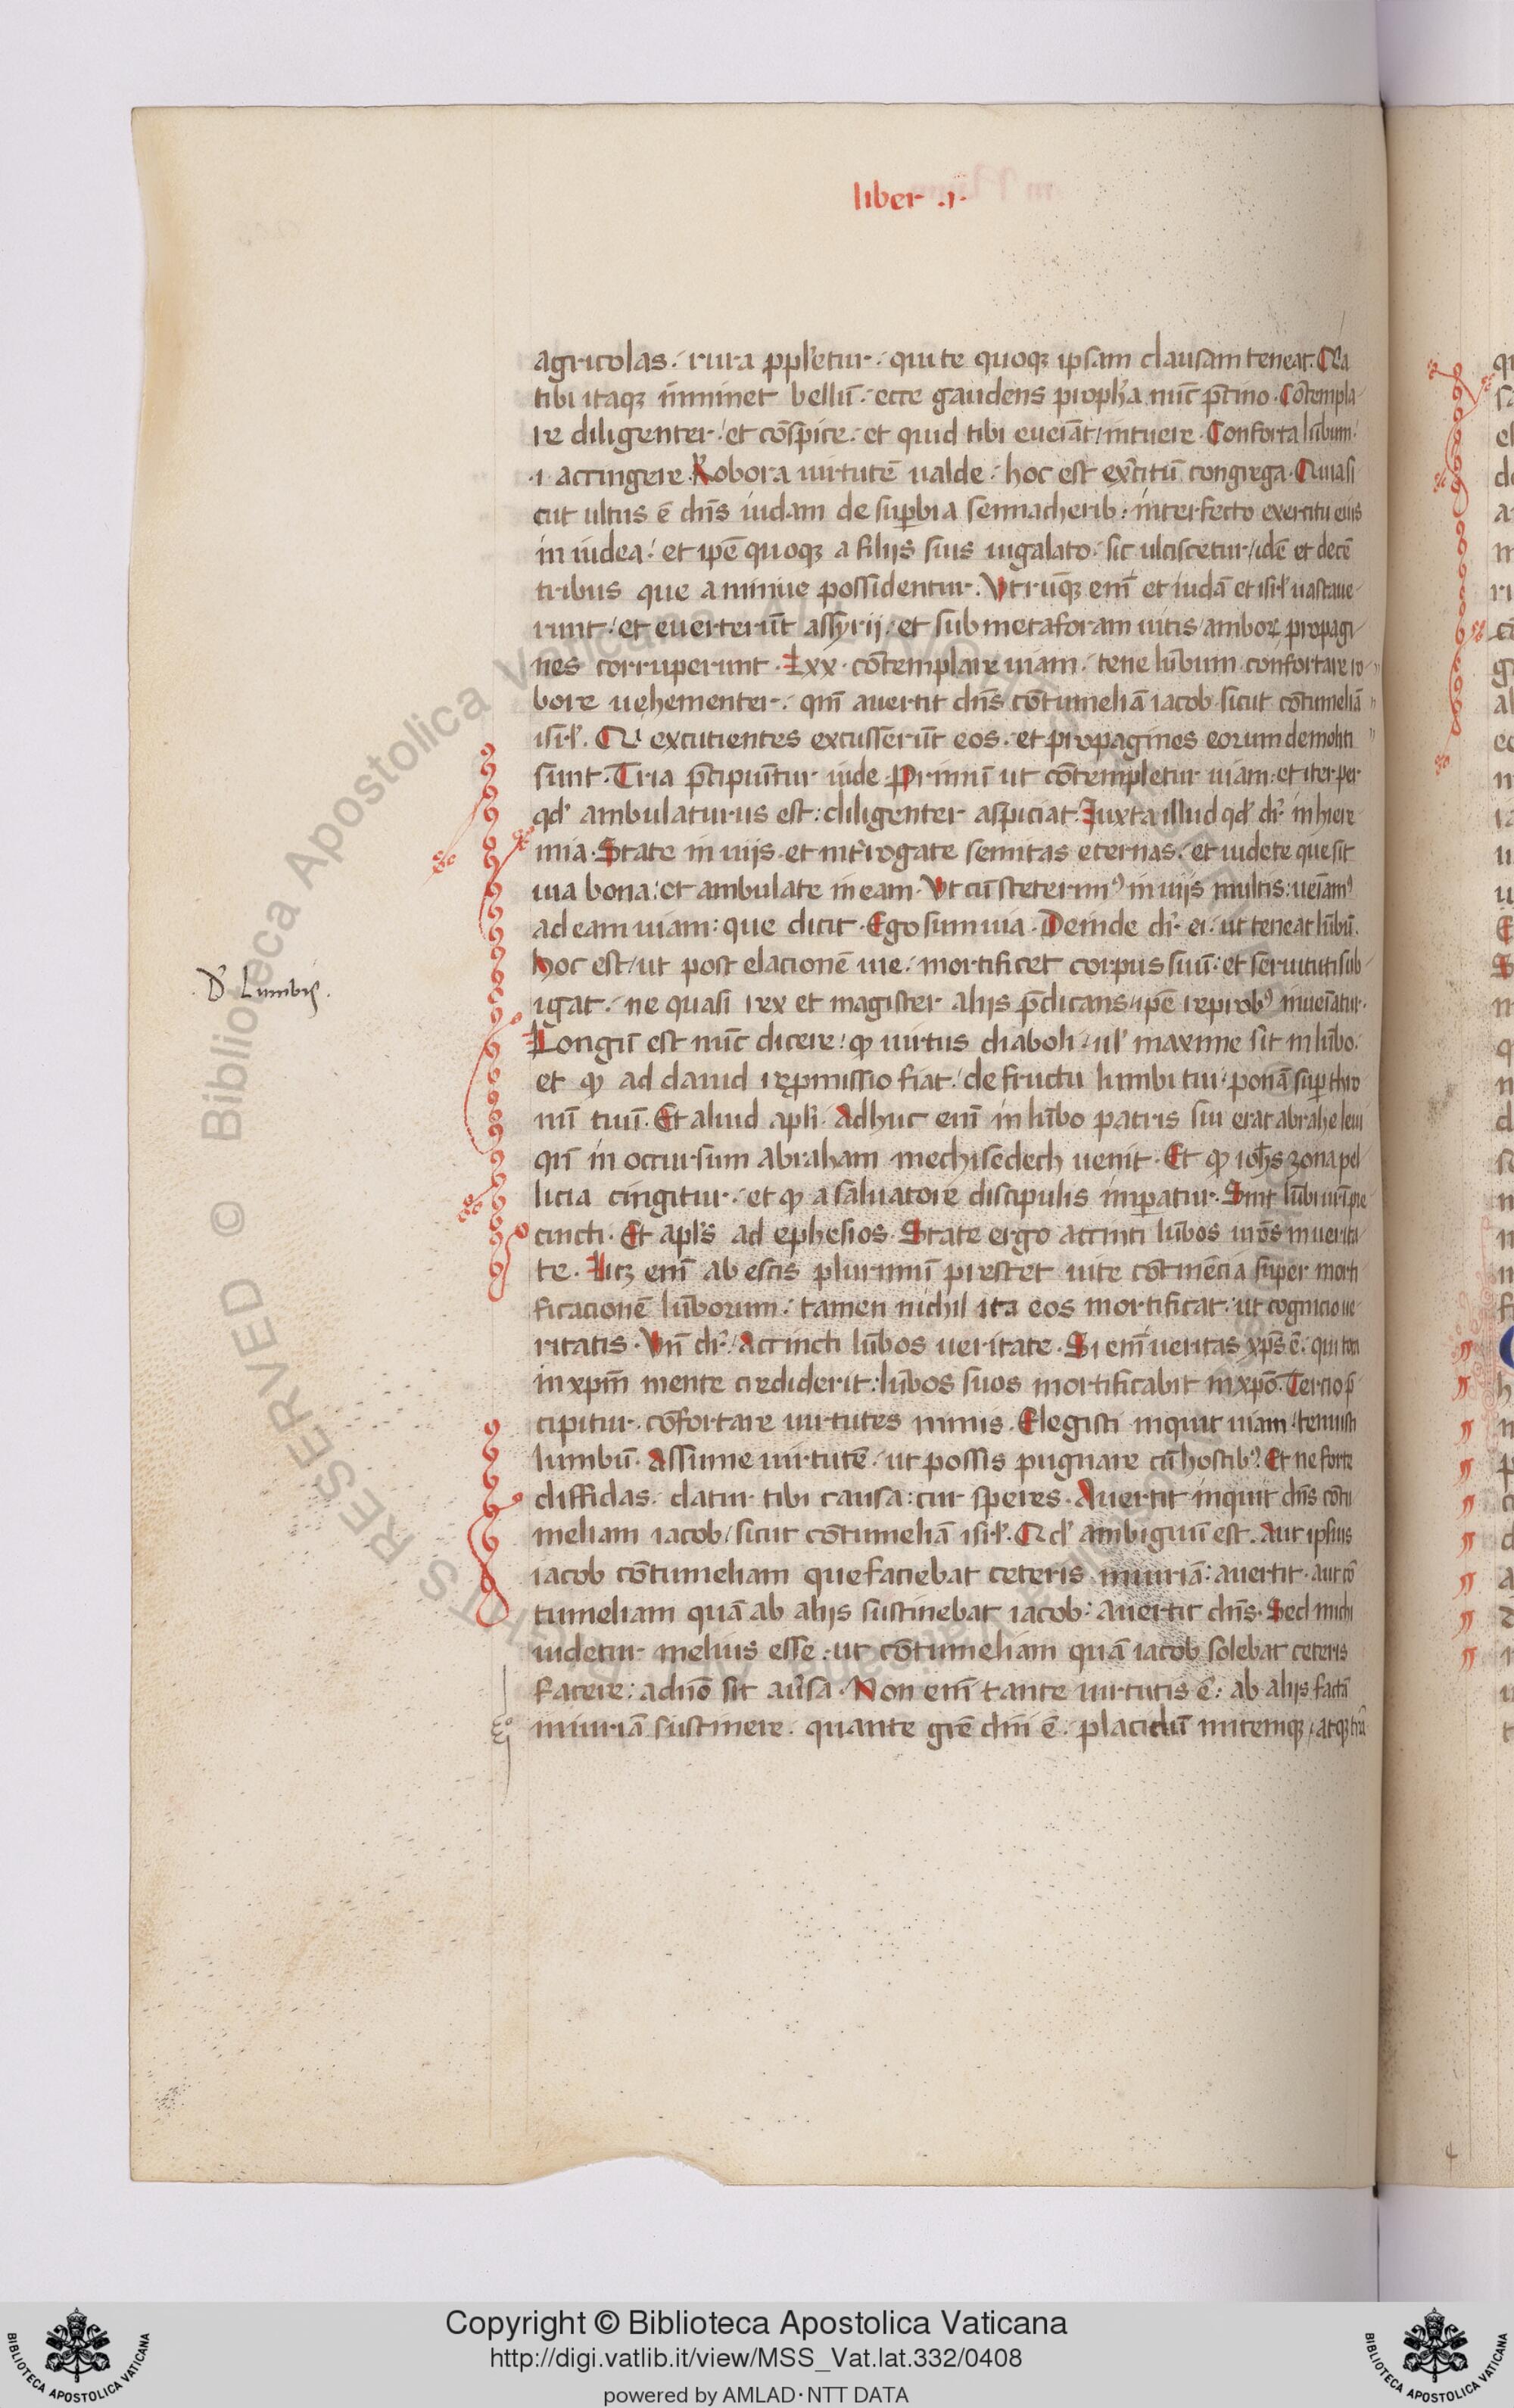 liber .i.
agricolas. rura ppletur. qui te quoqz ipsam clausam teneat. Qa
tibi itaqz iminet bellū. ecce gaudens propħa nūc pcino. Cōtempla
re diligenter. et cōspice. et quid tibi eueiāt intuere. Conforta lūbum.
.i. accingere. Robora uirtutē ualde. hoc est exercitū congrega. Quia si
cut ultus ē dn̄s iudam de supbia sennacherib. interfecto exercitu eius
in iudea. et ipē quoqz a filijs suis iugulato. sic ulciscetur idē et decē
tribus que a niniue possidentur. Vtrūqz em̄ et iudā et isrl' uastaue
runt. et euerterūt assyrij. et sub metaforam uitis amboꝝ propagi
nes corruperunt. Lxx. cōtemplare uiam. tene lūbum. confortare ro
bore uehementer. qm̄ auertit dn̄s cōtumeliā iacob. sicut cōtumeliā
isrl'. Qi excutientes excusserūt eos. et propagines eorum demoliti
sunt. Tria pcipiuntur iude. Primū ut cōtempletur uiam. et iter per
qd' ambulaturus est. diligenter aspiciat. Iuxta illud qd' dr̄ in hiere
mia. State in uijs. et int'rogate semitas eternas. et uidete que sit
uia bona. et ambulate in eam. Vt cū steterimꝰ in uijs multis. ueiamꝰ
ad eam uiam. que dicit. Ego sum uia. Deinde dr̄ ei. ut teneat lūbū.
hoc est. ut post elacionē uie. mortificet corpus suū. et seruituti sub
igat. ne quasi rex et magister alijs p̄dicans. ipē reprobꝰ inueiatur.
D' Lumbis.
Longū est nūc dicere. qꝫ uirtus diaboli. ul' maxime sit in lūbo.
et qꝫ ad dauid repmissio fiat. de fructu lumbi tui. ponā sup thro
nū tuū. Et aliud apli. Adhuc em̄ in lūbo patris sui erat abrahe leui
qn̄ in occursum abraham mechisedech uenit. Et qꝫ ioħs zona pel
licia cingitur. et qꝫ a saluatore discipulis imperatur. Sint lūbi uri pre
cincti. Et apls ad ephesios. State ergo accinti lūbos uros in uerita
te. Licz em̄ ab escis plurimū prestet uite cōtinēcia super morti
ficacionē lūborum. tamen nichil ita eos mortificat. ut cognicio ue
ritatis. Vn̄ dr̄. Accincti lūbos ueritate. Si em̄ ueritas xp̄s ē. qui tota
in xpm̄ mente crediderit. lūbos suos mortificabit in xpō. Tercio p
cipitur. cōfortare uirtutes nimis. Elegisti inquit uiam. tenuisti
lumbū. Assume uirtutē. ut possis pugnare cū hostibꝰ. Et ne forte
diffidas. datur tibi causa. cur speres. Auertit inquit dn̄s cōtu
meliam iacob. sicut cōtumeliā isrl'. Qd' ambiguū est. Aut ipsius
iacob cōtumeliam que faciebat ceteris iniuriā. auertit. aut cō
tumeliam quā ab alijs sustinebat iacob. auertit dn̄s. Sed michi
uidetur melius esse. ut cōtumeliam quā iacob solebat ceteris
facere. a dn̄o sit au'sa. Non em̄ tante uirtutis ē. ab alijs factā
iniuriā sustinere. quante grē dm̄ ē. placidū mitemqz. atqz
4
Copyright © Biblioteca Apostolica Vaticana
http://digi.vatlib.it/view/MSS_Vat.lat.332/0408
powered by AMLAD·NTT DATA